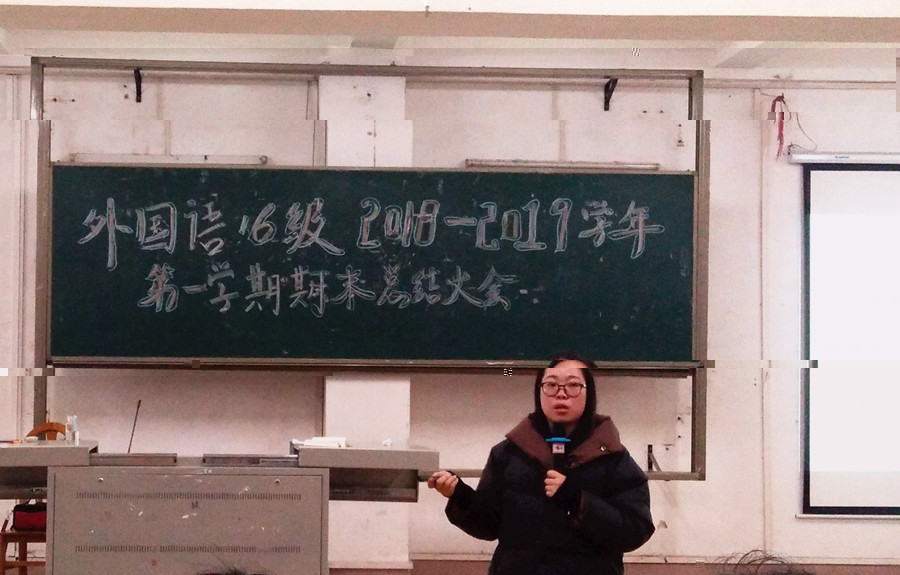 外国语16级 2018-2019学年
第一学期期末总结大会